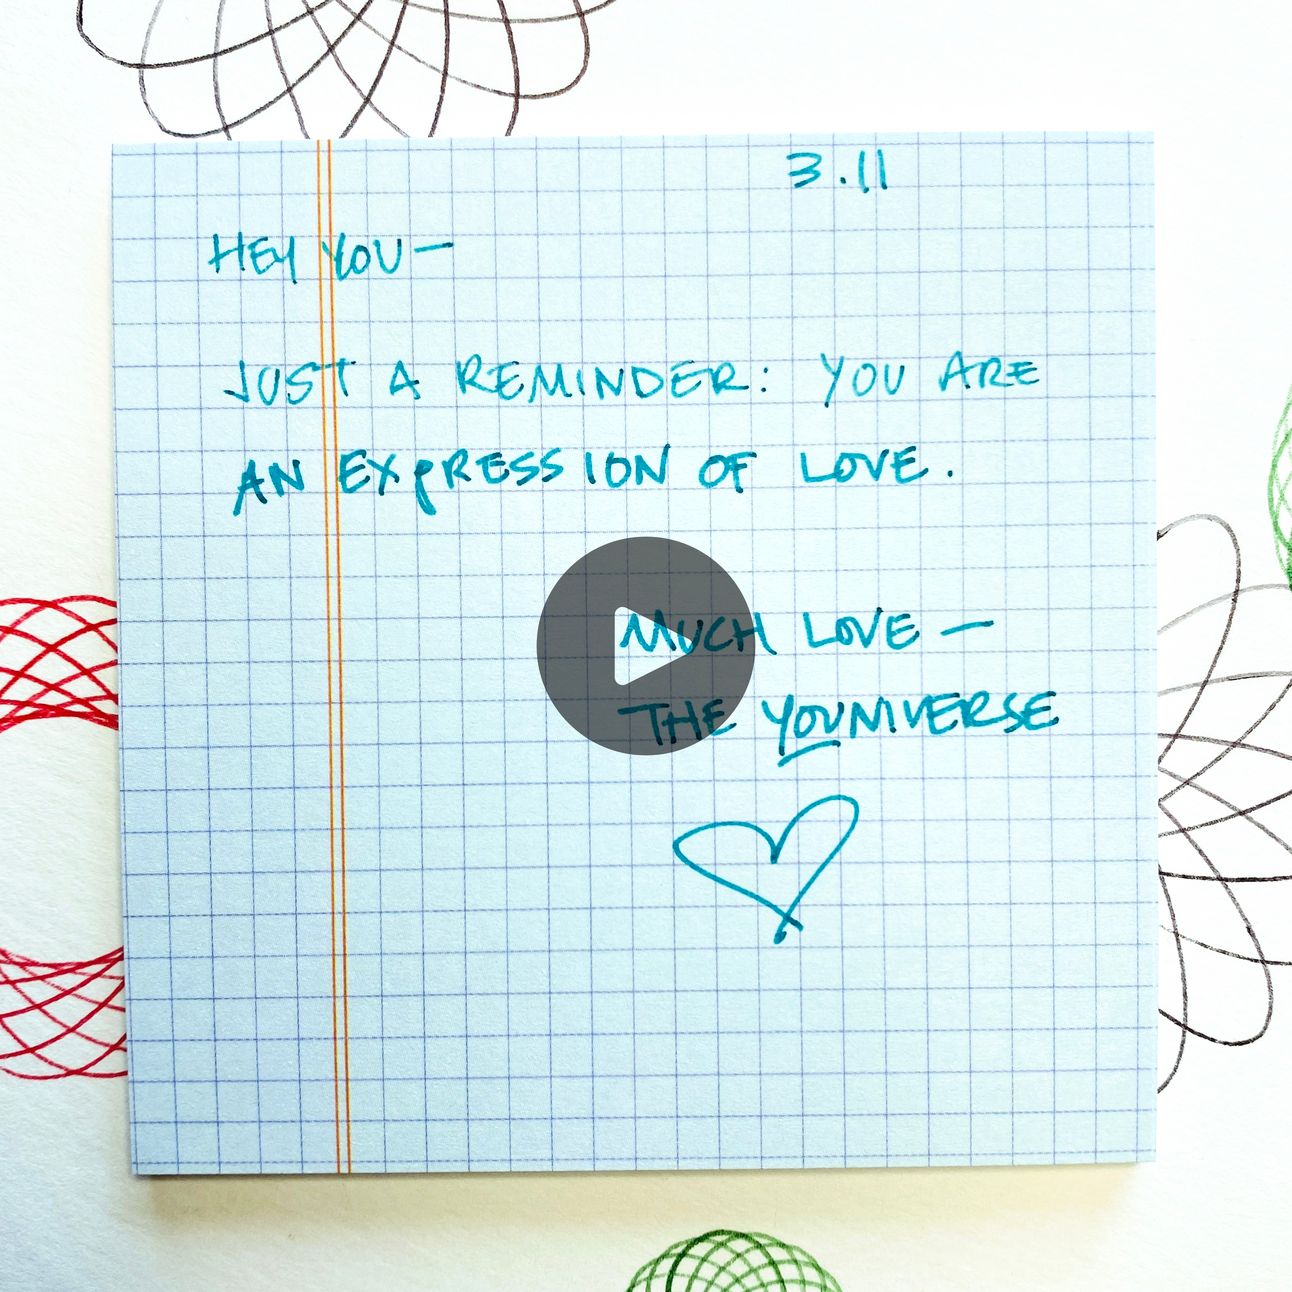 3.11
HEY YOU—
JUST A REMINDER: YOU ARE
AN EXPRESSION OF LOVE.
MUCH LOVE —
THE YOUNIVERSE